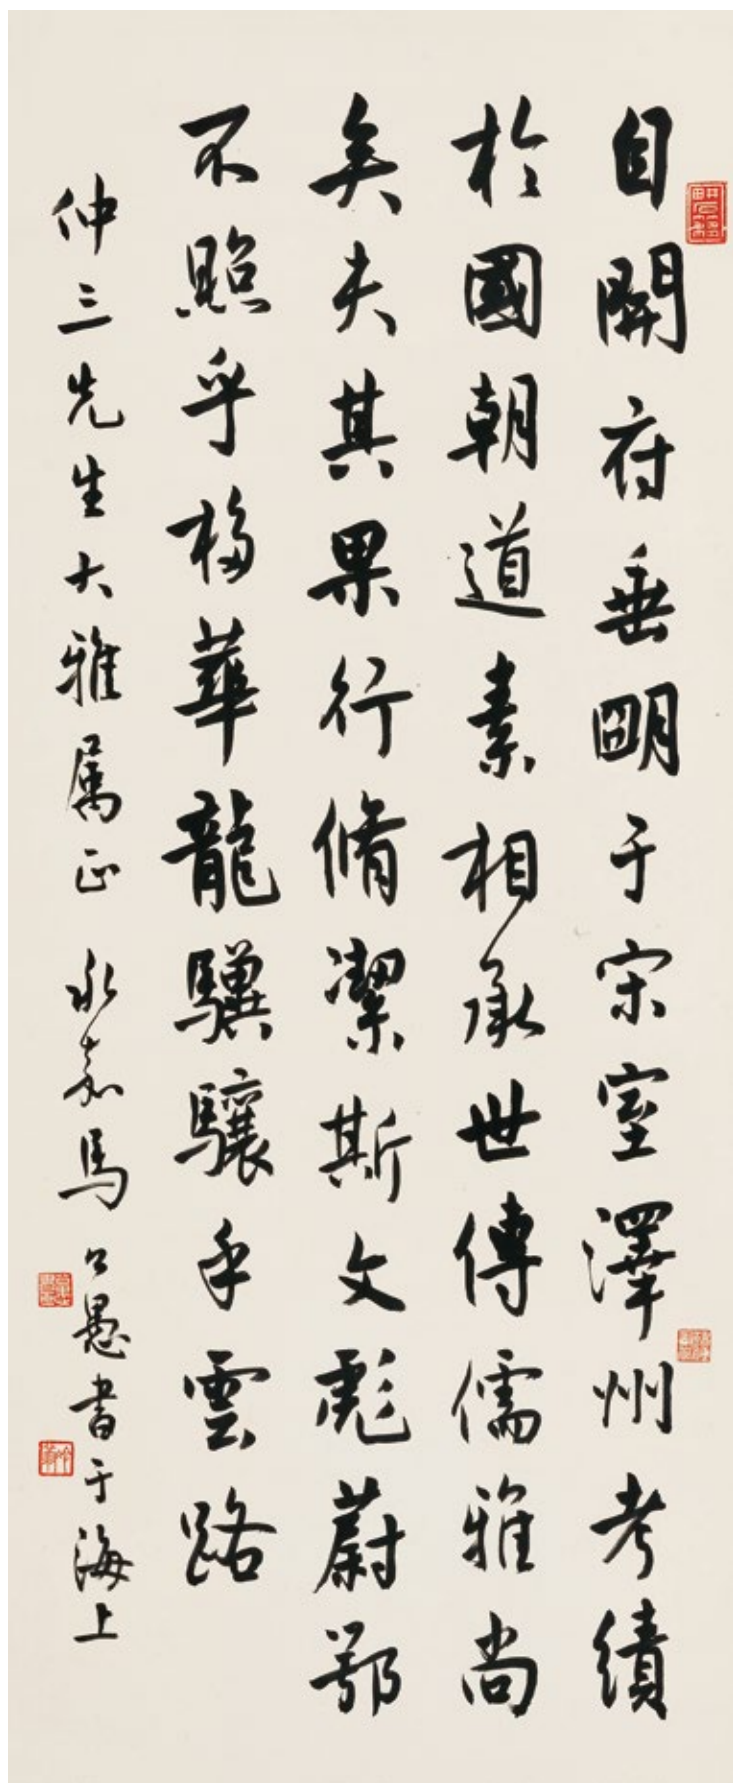 自開府垂明于宋室澤州考績
於國朝道素相承世傳儒雅尚
矣夫其果行脩潔斯文彪蔚鄂
不照乎移華龍驥驤乎雲路
仲三先生大雅属正 永嘉馬公愚書于海上